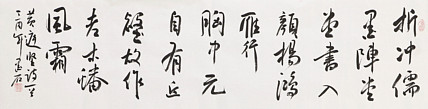 折冲儒
墨陣堂
堂書入
顏楊鴻
雁行
胸中元
自有丘
壑故作
老木蟠
風霜
黃庭堅詩一首